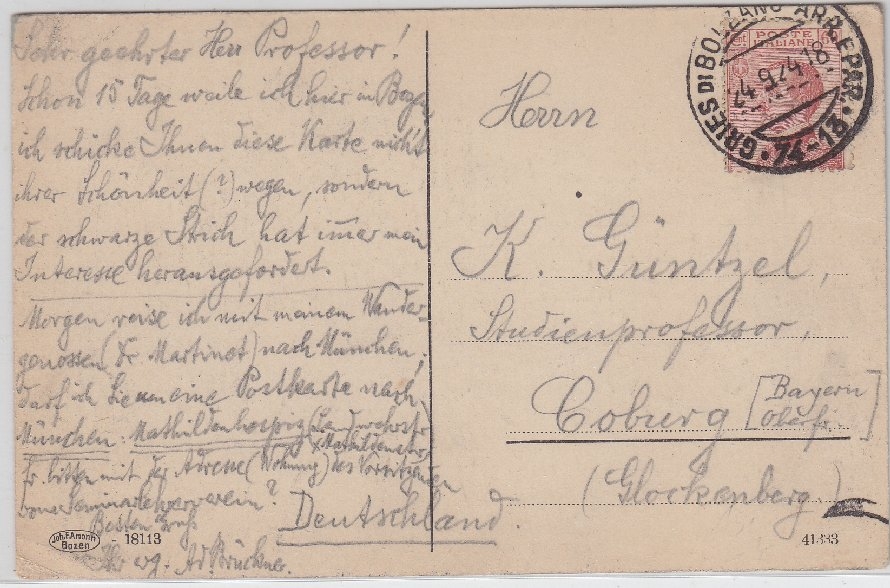 Sehr geehrter Herr Professor!
Schon 15 Tage weile ich hier in Bozen
ich schicke Ihnen diese Karte nicht
ihrer Schönheit (?) wegen, sondern
der schwarze Strich hat immer mein
Interesse herausgefordert.
Morgen reise ich mit meinem Wander-
genossen (Dr Martinet) nach München;
darf ich Sie um eine Postkarte nach
München: Mathildenhospiz (Landwehrstr
Mathildenstr)
bitten mit der Adresse (Wohnung) des Vorsitzenden
vom Seminarlehrerverein?
Besten Gruß
Ihr erg. Ad. Brückner.
Joh. F. Amonn
Bozen
18113
POSTE
ITALIANE
GRIES DI BOLZANO ARR. E PAR.
24.9.24 18
74-13
Herrn
K. Güntzel,
Studienprofessor,
Coburg [Bayern
(Glockenberg.)
Deutschland.
41383